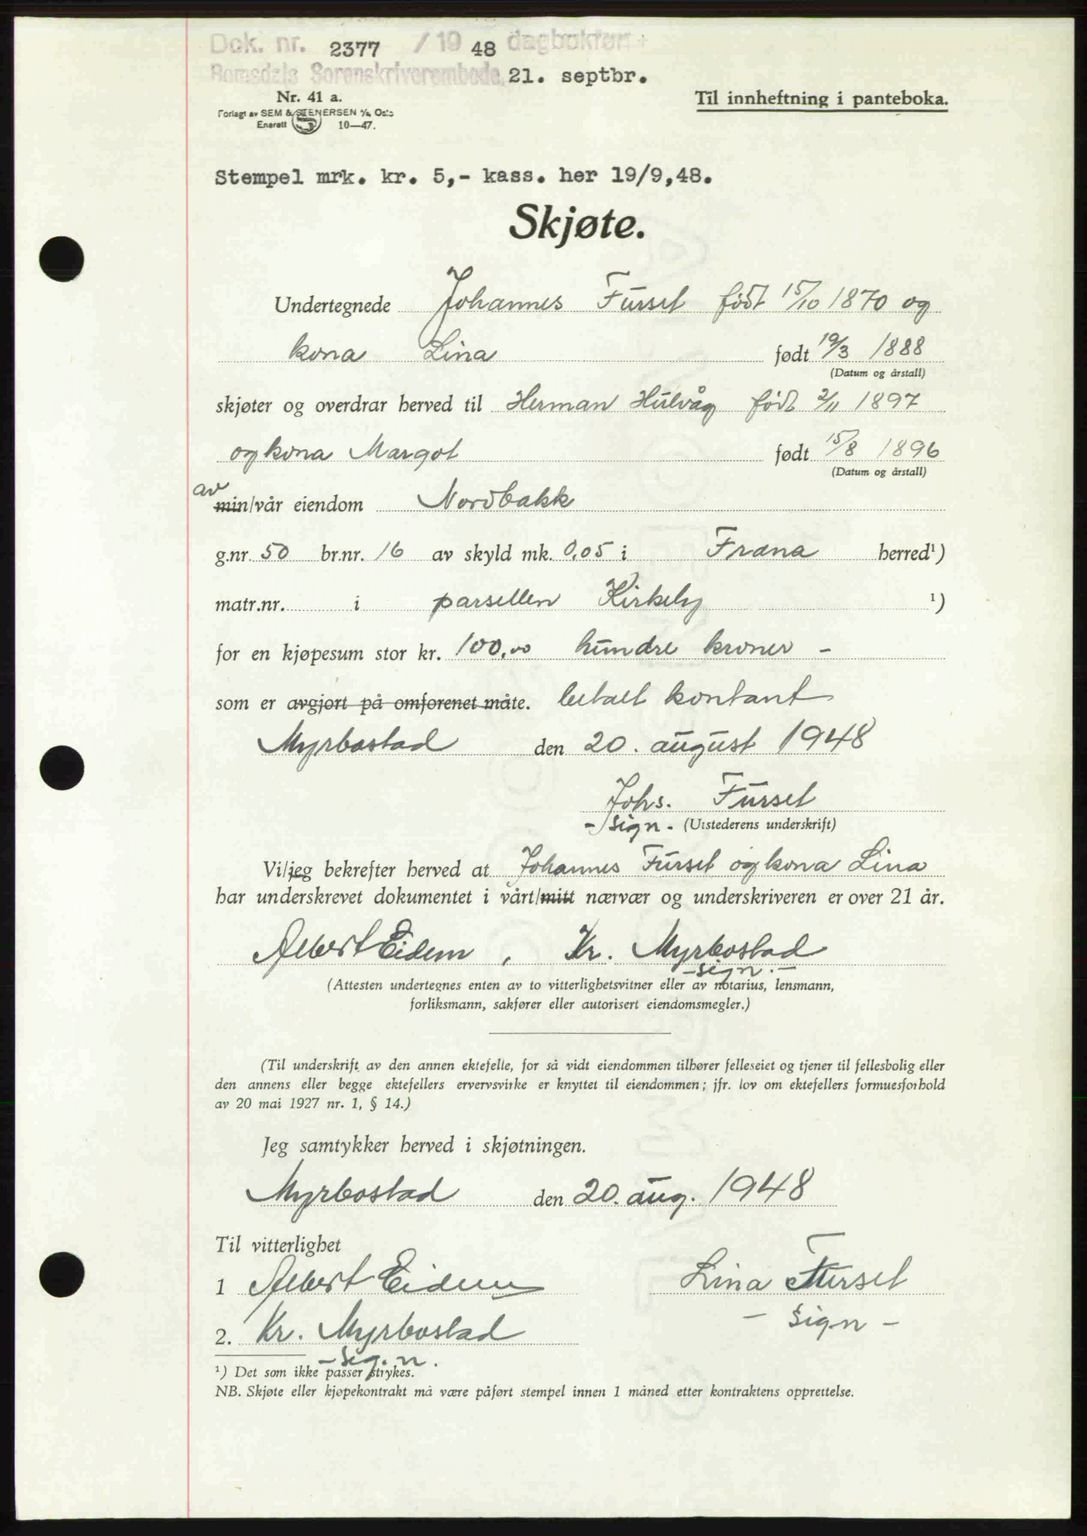 Dok. nr. 2377 / 19 48 dagbokført
Romsdals Sorenskriverembede, 21. septbr.
Nr. 41 a.
Til innheftning i panteboka.
Forlagt av SEM & STENERSEN A/S, Oslo
Enerett 10—47.
Stempel mrk. kr. 5,- kass. her 19/9,48.
Skjøte.
Undertegnede Johannes Furset født 15/10 1870 og
kona Lina født 19/3 1888
(Datum og årstall)
skjøter og overdrar herved til Herman Hulvåg født 2/11 1897
og kona Margot født 15/8 1896
(Datum og årstall)
av
min/vår eiendom Nordbakk
g.nr. 50 br.nr. 16 av skyld mk. 0,05 i Fræna herred¹)
matr.nr. i parsellen Kirkeby ¹)
for en kjøpesum stor kr. 100,00 hundre kroner -
som er avgjort på omforenet måte. betalt kontant
Myrbostad den 20. august 1948
Johs. Furset
- sign. (Utstederens underskrift)
Vi/jeg bekrefter herved at Johannes Furset og kona Lina
har underskrevet dokumentet i vårt/mitt nærvær og underskriveren er over 21 år.
Albert Eidem, Kr. Myrbostad
- sign. -
(Attesten undertegnes enten av to vitterlighetsvitner eller av notarius, lensmann,
forliksmann, sakfører eller autorisert eiendomsmegler.)
(Til underskrift av den annen ektefelle, for så vidt eiendommen tilhører felleseiet og tjener til fellesbolig eller
den annens eller begge ektefellers ervervsvirke er knyttet til eiendommen; jfr. lov om ektefellers formuesforhold
av 20 mai 1927 nr. 1, § 14.)
Jeg samtykker herved i skjøtningen.
Myrbostad den 20. aug. 1948
Til vitterlighet
1 Albert Eidem Lina Furset
- sign -
2. Kr. Myrbostad
- sign.
¹) Det som ikke passer strykes.
NB. Skjøte eller kjøpekontrakt må være påført stempel innen 1 måned etter kontraktens opprettelse.